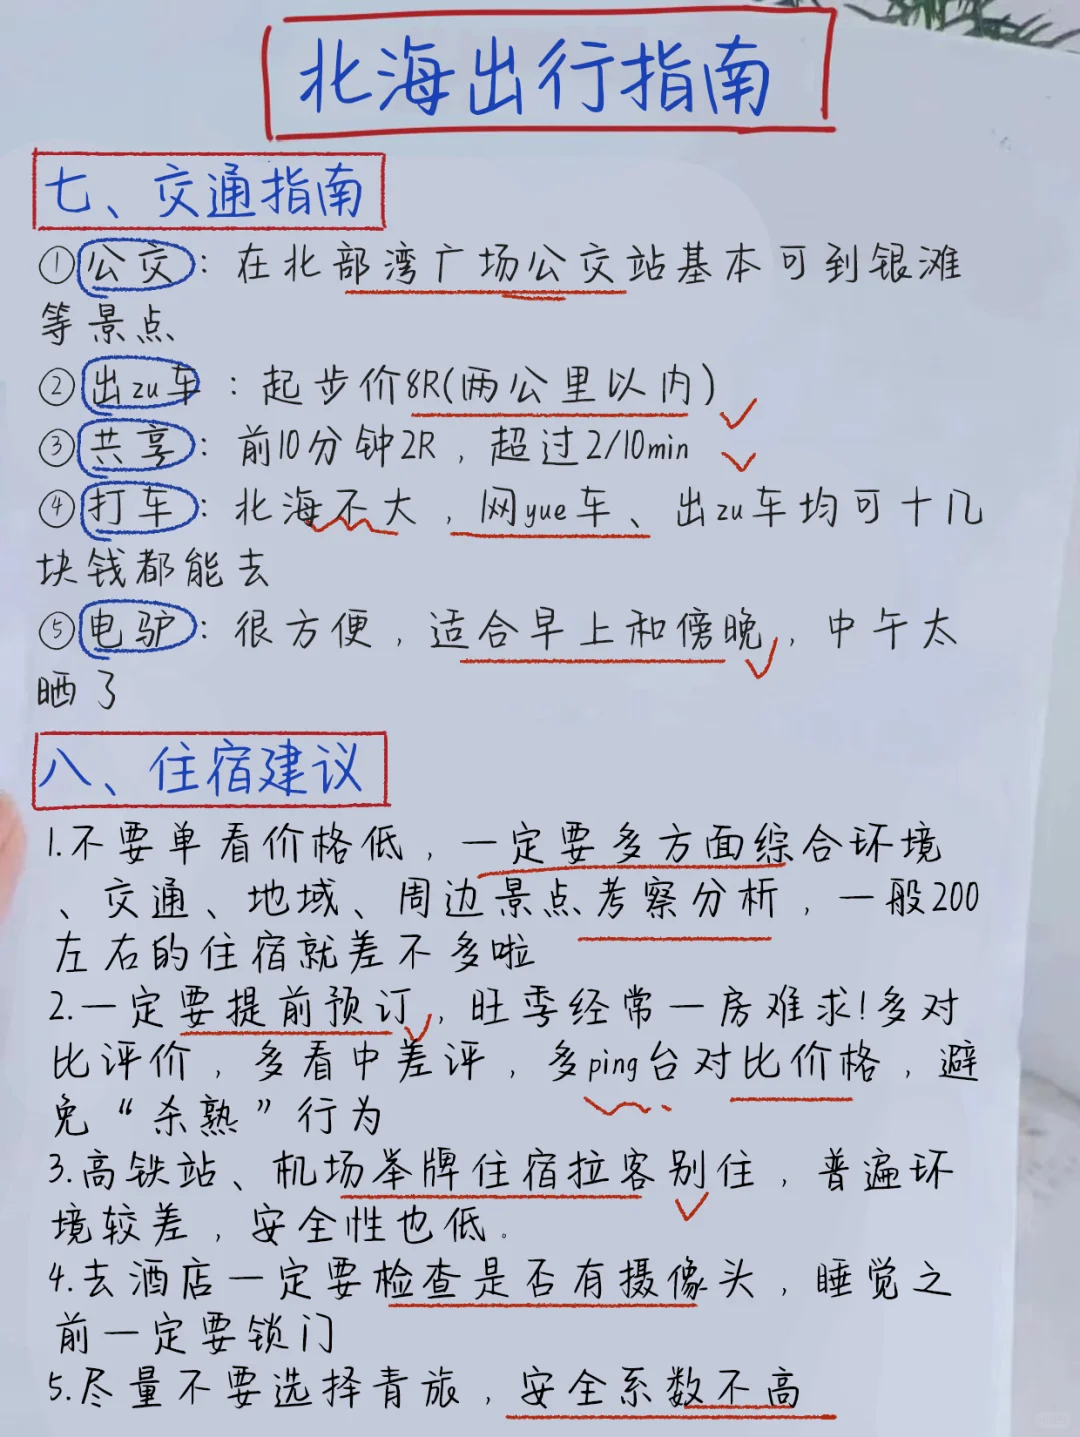 北海出行指南
七、交通指南
①公交：在北部湾广场公交站基本可到银滩
等景点
②出zu车：起步价8R(两公里以内)
③共享：前10分钟2R，超过2/10min
④打车：北海不大，网yue车、出zu车均可十几
块钱都能去
⑤电驴：很方便，适合早上和傍晚，中午太
晒了
八、住宿建议
1.不要单看价格低，一定要多方面综合环境
、交通、地域、周边景点考察分析，一般200
左右的住宿就差不多啦
2.一定要提前预订，旺季经常一房难求！多对
比评价，多看中差评，多ping台对比价格，避
免“杀熟”行为
3.高铁站、机场举牌住宿拉客别住，普遍环
境较差，安全性也低。
4.去酒店一定要检查是否有摄像头，睡觉之
前一定要锁门
5.尽量不要选择青旅，安全系数不高